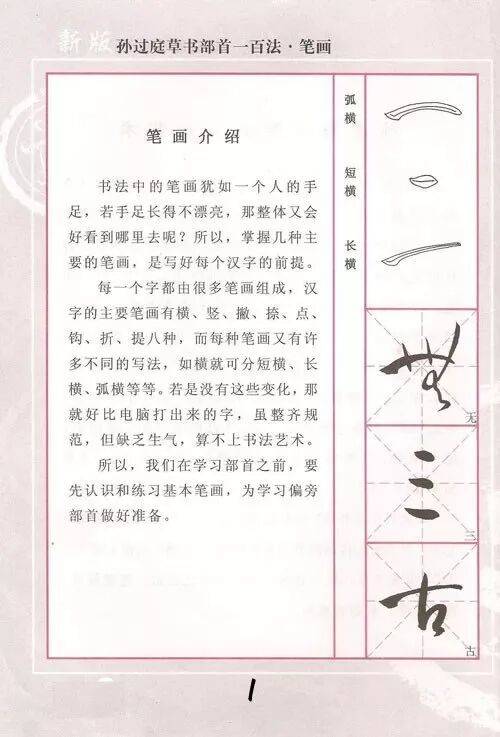 新版 孙过庭草书部首一百法·笔画
笔画介绍
书法中的笔画犹如一个人的手
足，若手足长得不漂亮，那整体又会
好看到哪里去呢？所以，掌握几种主
要的笔画，是写好每个汉字的前提。
每一个字都由很多笔画组成，汉
字的主要笔画有横、竖、撇、捺、点、
钩、折、提八种，而每种笔画又有许
多不同的写法，如横就可分短横、长
横、弧横等等。若是没有这些变化，那
就好比电脑打出来的字，虽整齐规
范，但缺乏生气，算不上书法艺术。
所以，我们在学习部首之前，要
先认识和练习基本笔画，为学习偏旁
部首做好准备。
弧横
短横
长横
无
三
三
古
古
1